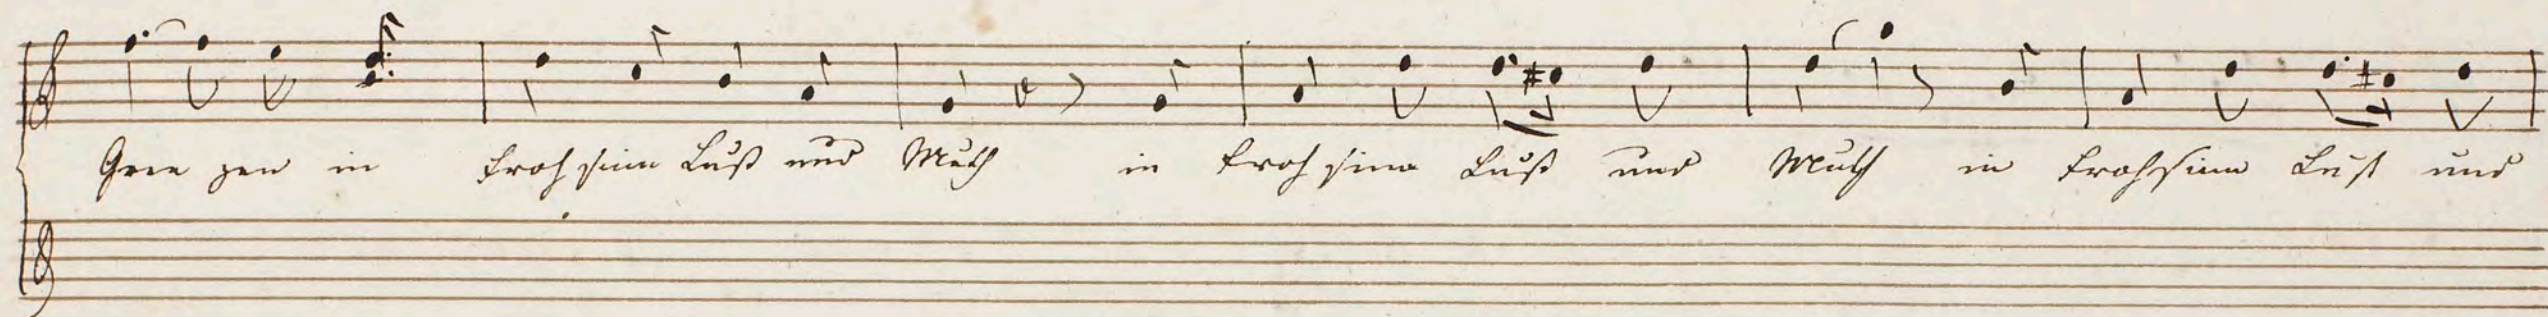 Gren zen in froh sinn Lust und Muth in froh sinn Lust und Muth in frohsinn Lust und